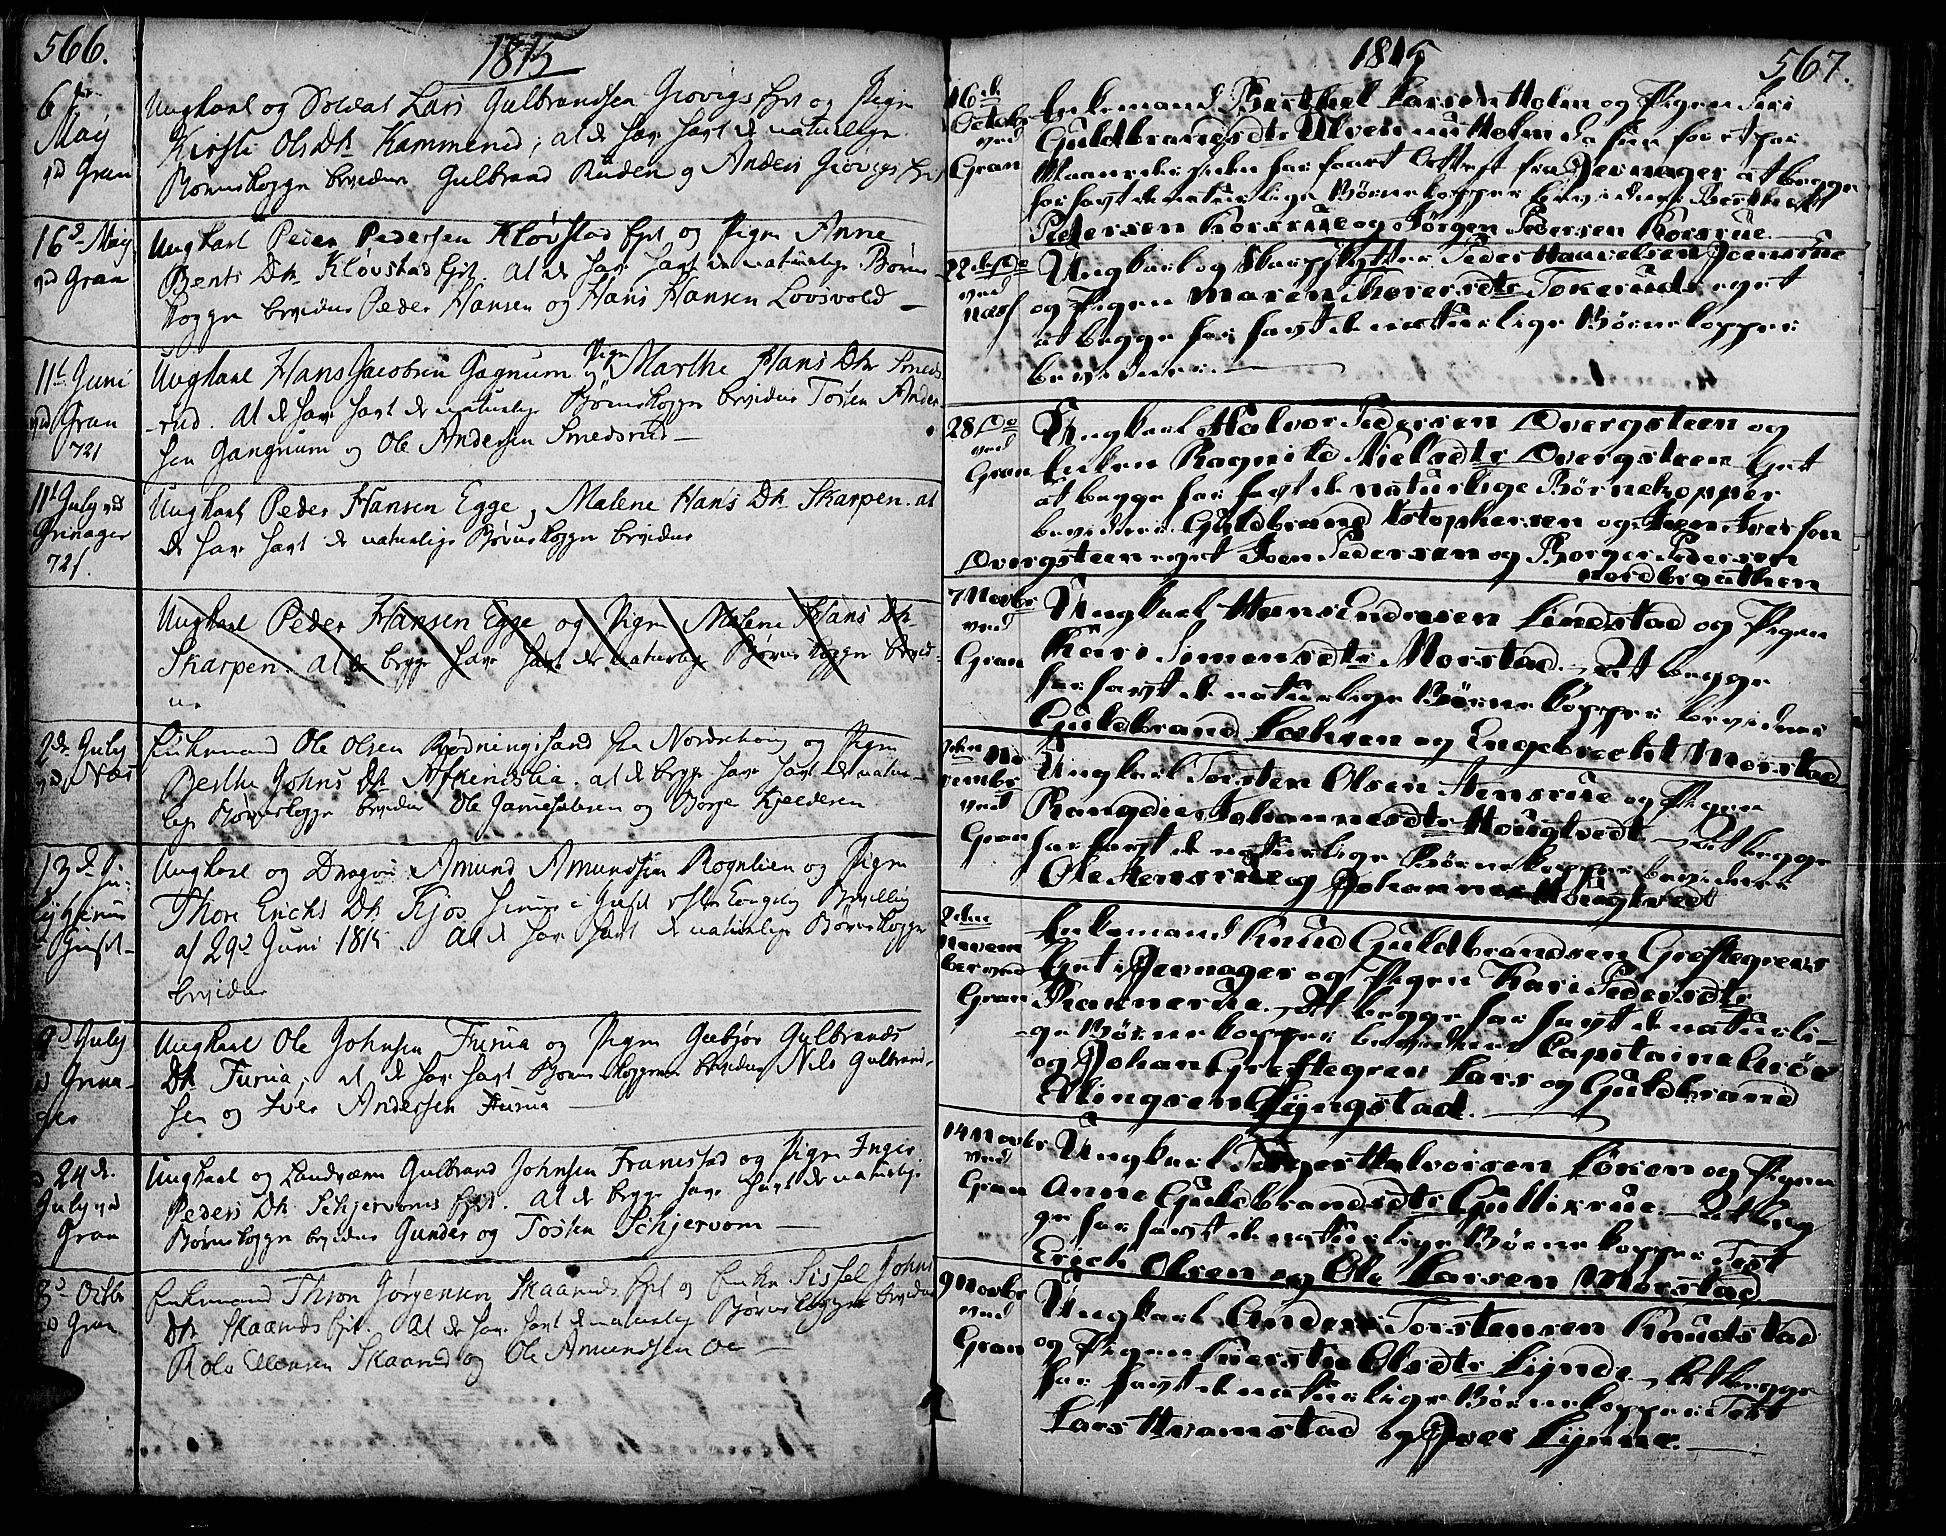 566.
1815
6te
May
ved Gran
Ungkarl og Soldat Lars Gulbrandsen Giøvigs Ejet og Pigen
Kirsti Ols Dtr Kammerud; at de har havt de naturlige
Børnekopper bevidner Gulbrand Ruden og Anders Giøvigs Ejet
16d May
ved Gran
Ungkarl Peder Pedersen Kløvstad Ejet og Pigen Anne
Bents Dtr Kløvstad Ejet. At de har havt de naturlige Børne-
kopper bevidner Peder Hansen og Hans Hansen Lovsvold
11t Juni
ved Gran
721
Ungkarl Hans Jacobsen Gagnum og Pigen Marthe Hans Dtr Smeds-
rud. At de har havt de naturlige Børnekopper bevidner Tosten Ander-
sen Gangnum og Ole Andersen Smedsrud
11t July ved
Grinager
721.
Ungkarl Peder Hansen Egge, Malene Hans Dtr Skarpen. at
de har havt de naturlige Børnekopper bevidner
Ungkarl Peder Hansen Egge og Pigen Malene Hans Dtr
Skarpen. At de begge har havt de naturlige Børnekopper bevid-
ner
2de July
ved Næs
Enkemand Ole Olsen Rødningsand fra Norderhoug og Pigen
Berthe Johns Dtr. at de begge har havt de natur-
lige Børnekopper bevidner Ole og Børge Kjeldsen
13d Ju-
ly
Ungkarl og Dragon Amund Amundsen Rognlien og Pigen
Thore Erichs Dtr Kjos efter Kongelig Bevilling
af 29d Juni 1815. At de har havt de naturlige Børnekopper
bevidner
July
Grina-
ger
Ungkarl Ole Johnsen Furua og Pigen Gubjør Gulbrands
Dtr Furua, at de har havt Børnekopperne bevidner Nils Gulbrand-
sen og Iver Andersen Furua
24de
July ved
Gran
Ungkarl og Landværn Gulbrand Johnsen Framstad og Pigen Inger
Peders Dtr Schjervoms Ejet. At de begge har havt de naturlige
Børnekopper bevidner Gunder og Tosten Schjervom
8d Octbr
ved Gran
Enkemand Thron Jørgensen Skaarud Ejet og Enken Sissel Johns
Dtr Skaaruds Ejet. At de har havt de naturlige Børnekopper bevidner
Rolv Ellensen Skaarud og Ole Amundsen
1815
567.
16de
October
ved
Gran
Enkemand Berthel Larsen Holm og Pigen Siri
Guldbrandsdtr Ulven nu Holm da hun for et par
Maaneder siden har faaet Attest fra Jevnager at begge
har havt de naturlige Børnekopper bevidner Berthel
Pedersen Korsrue og Jørgen Pedersen Korsrue.
22de Do
ved
Næs
Ungkarl og Skarpskytter Peder Haavelsen Joensrue
og Pigen Maren Thoresdtr Tokeruds eyet
at begge har havt de naturlige Børnekopper
bevidner:
28 Do
ved
Gran
Ungkarl Halvor Pedersen Dvergsteen og
Enken Ragnild Nielsdtr Dvergsteen Eyet
at begge har havt de naturlige Børnekopper
bevidner Guldbrand Istophersen og Steen Iversen
Dvergsteen eyet Iver Pedersen og Borger Pedersen
Nordbraathen
7 Novbr
ved
Gran
Ungkarl Hans Endresen Lindstad og Pigen
Kari Simensdtr Morstad. At begge
har havt de naturlige Børnekopper bevidner
Guldbrand Larsen og Engebrecht Morstad
No
vembr
ved
Gran
Ungkarl Torsten Olsen Stensrue og Pigen
Rangdie Johannesdtr Hougtvedt. At begge
har havt de naturlige Børnekopper bevidner
Ole Stensrue og Johannes Hougtvedt
2den
Novem
ber ved
Gran
Enkemand Knud Guldbrandsen Greftegrevs
Eyet i Jevnager og Pigen Kari Pedersdtr
Rannerue. At begge har havt de naturli-
ge Børnekopper bevidner Capitaine
og Johan Greftegren Lars og Guldbrand
Elingsen Lyngstad.
14 Novbr
ved
Gran
Ungkarl Torger Halvorsen Løken og Pigen
Anne Guldbrandsdtr Gullixrue. At beg
ge har havt de naturlige Børnekopper Test
Erich Olsen og Ole Larsen Morstad
9 Novbr
ved
Gran
Ungkarl Anders Torstensen Knudstad
og Pigen Kiersti Olsdtr Lynde. At begge
har havt de naturlige Børnekopper: Test
Lars Hvamstad og Iver Lynne.